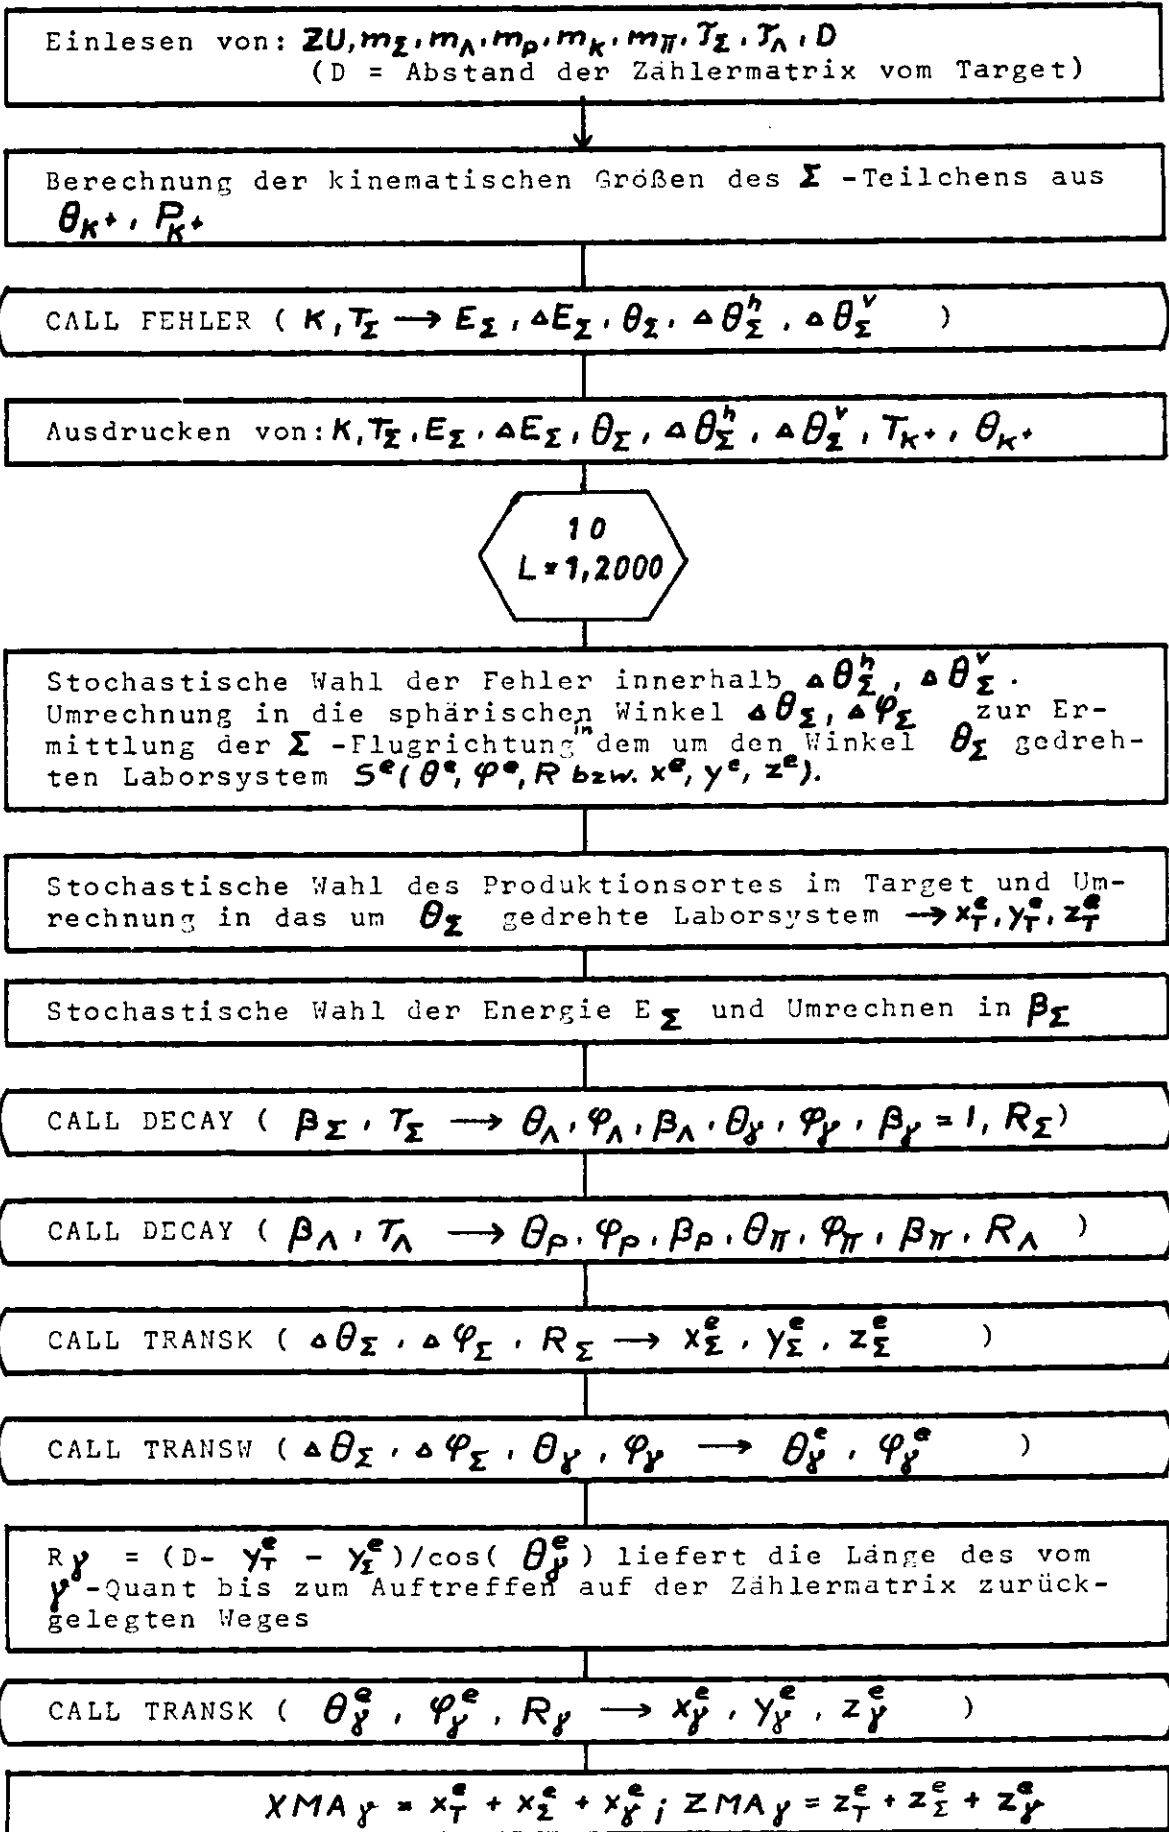 Einlesen von: ZU, m_Σ, m_Λ, m_p, m_K, m_π, τ_Σ, τ_Λ, D
(D = Abstand der Zählermatrix vom Target)
Berechnung der kinematischen Größen des Σ -Teilchens aus
θ_K⁺, P_K⁺
CALL FEHLER ( K, T_Σ → E_Σ, ΔE_Σ, θ_Σ, Δθ_Σ^h, Δθ_Σ^v )
Ausdrucken von: K, T_Σ, E_Σ, ΔE_Σ, θ_Σ, Δθ_Σ^h, Δθ_Σ^v, T_K⁺, θ_K⁺
10
L = 1,2000
Stochastische Wahl der Fehler innerhalb Δθ_Σ^h, Δθ_Σ^v.
Umrechnung in die sphärischen Winkel Δθ_Σ, Δφ_Σ zur Er-
mittlung der Σ -Flugrichtung in dem um den Winkel θ_Σ gedreh-
ten Laborsystem S^e(θ^e, φ^e, R bzw. x^e, y^e, z^e).
Stochastische Wahl des Produktionsortes im Target und Um-
rechnung in das um θ_Σ gedrehte Laborsystem → x_T^e, y_T^e, z_T^e
Stochastische Wahl der Energie E_Σ und Umrechnen in β_Σ
CALL DECAY ( β_Σ, τ_Σ → θ_Λ, φ_Λ, β_Λ, θ_γ, φ_γ, β_γ = 1, R_Σ)
CALL DECAY ( β_Λ, τ_Λ → θ_p, φ_p, β_p, θ_π, φ_π, β_π, R_Λ )
CALL TRANSK ( Δθ_Σ, Δφ_Σ, R_Σ → x_Σ^e, y_Σ^e, z_Σ^e )
CALL TRANSW ( Δθ_Σ, Δφ_Σ, θ_γ, φ_γ → θ_γ^e, φ_γ^e )
R_γ = (D- y_T^e - y_Σ^e)/cos( θ_γ^e ) liefert die Länge des vom
γ -Quant bis zum Auftreffen auf der Zählermatrix zurück-
gelegten Weges
CALL TRANSK ( θ_γ^e, φ_γ^e, R_γ → x_γ^e, y_γ^e, z_γ^e )
XMA_γ = x_T^e + x_Σ^e + x_γ^e ; ZMA_γ = z_T^e + z_Σ^e + z_γ^e